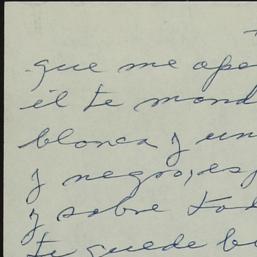 que me ape
él te mand
blanca y un
y negro, es
y sobre tod
te quede bi